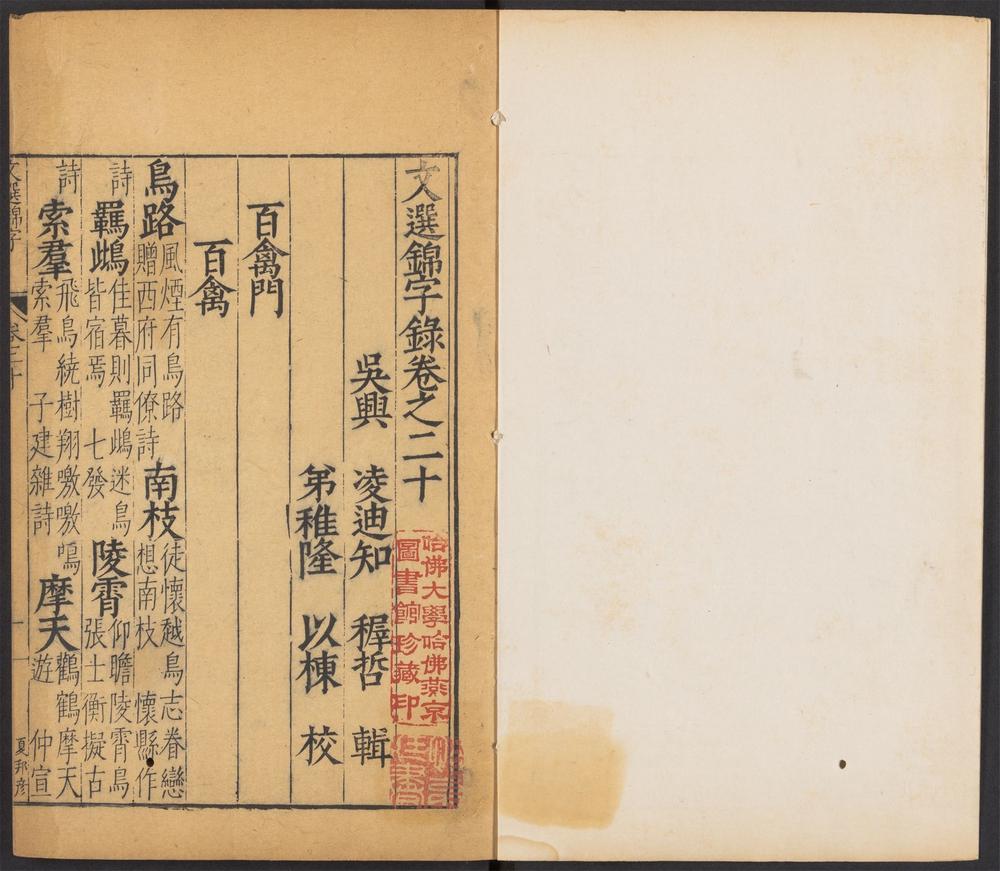 文選錦字錄卷之二十
吳興 凌迪知 穉哲 輯
弟稚隆 以棟 校
百禽門
百禽
鳥路 風煙有鳥路 贈西府同僚詩 南枝 徒懷越鳥志眷戀 想南枝 懷縣作
詩 羈鴟 佳暮則羈鴟迷鳥 皆宿焉 七發 陵霄 仰瞻陵霄鳥 張士衡擬古
詩 索羣 飛鳥繞樹翔噭噭鳴 索羣 子建雜詩 摩天 鸛鶴摩天 遊 仲宣
文選錦字 卷二十
夏邦彥
哈佛大學哈佛燕京
圖書館珍藏印